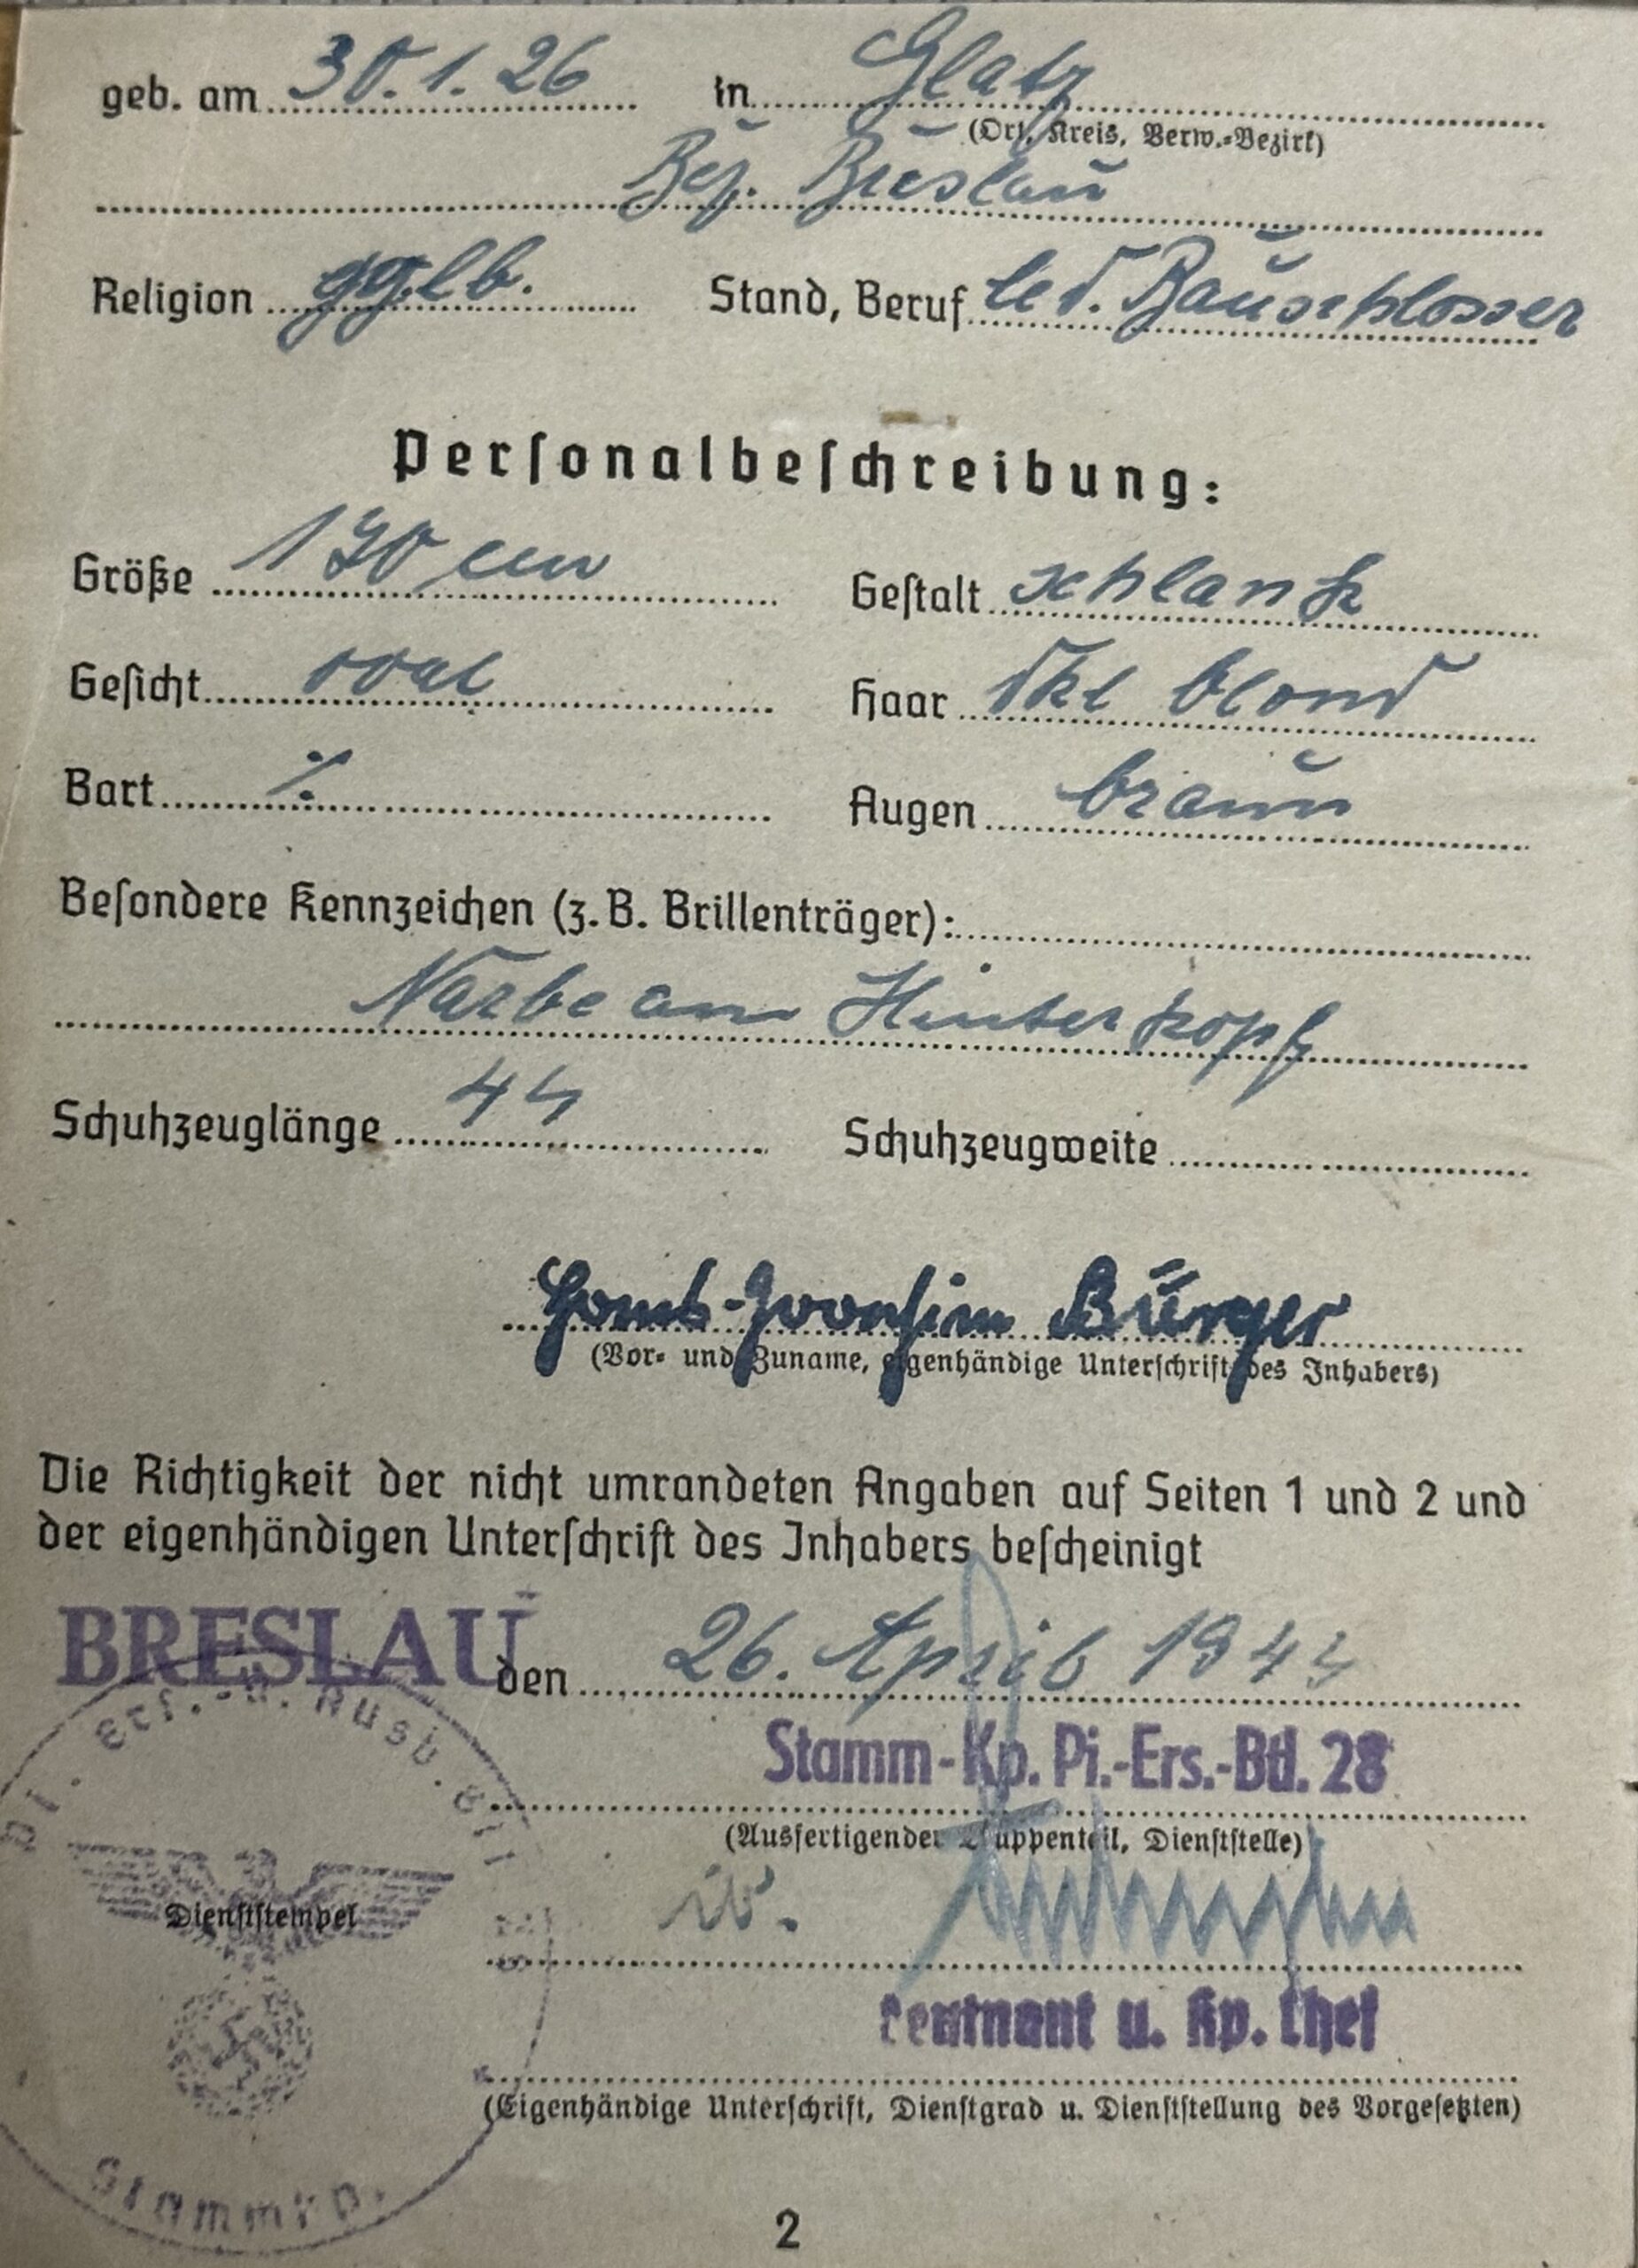 geb. am 30.1.26 in Glatz
(Ort, Kreis, Verw.-Bezirk)
Bez. Breslau
Religion gglb. Stand, Beruf led. Bauschlosser
Personalbeschreibung:
Größe 170 cm Gestalt schlank
Gesicht oval Haar dkl blond
Bart ./. Augen braun
Besondere Kennzeichen (z. B. Brillenträger):
Narbe am Hinterkopf
Schuhzeuglänge 44 Schuhzeugweite
Hans-Joachim Bürger
(Vor- und Zuname, eigenhändige Unterschrift des Inhabers)
Die Richtigkeit der nicht umrandeten Angaben auf Seiten 1 und 2 und
der eigenhändigen Unterschrift des Inhabers bescheinigt
BRESLAU den 26. April 1944
Stamm-Kp. Pi.-Ers.-Btl. 28
(Ausfertigender Truppenteil, Dienststelle)
Dienststempel
Leutnant u. Kp. Chef
(Eigenhändige Unterschrift, Dienstgrad u. Dienststellung des Vorgesetzten)
Ers.-u. Ausb.
Stammkp.
2